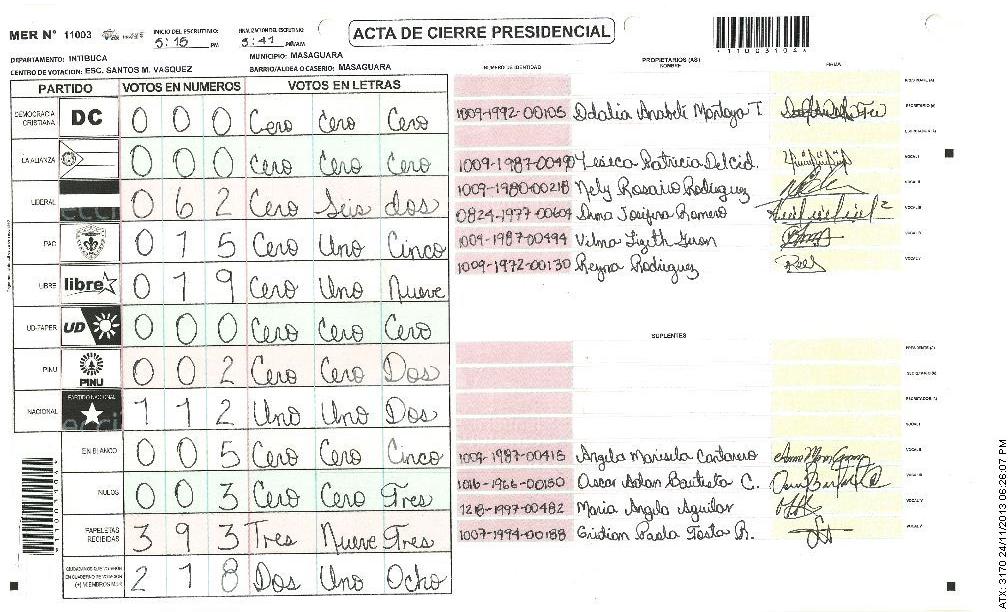 MER N° 11003
INICIO DEL ESCRUTINIO:
5:15 PM
FINALIZACION DEL ESCRUTINIO:
5:41 PM/AM
ACTA DE CIERRE PRESIDENCIAL
DEPARTAMENTO: INTIBUCA
MUNICIPIO: MASAGUARA
CENTRO DE VOTACION: ESC. SANTOS M. VASQUEZ
BARRIO/ALDEA O CASERIO: MASAGUARA
PARTIDO VOTOS EN NUMEROS VOTOS EN LETRAS
DEMOCRACIA CRISTIANA DC 0 0 0 Cero Cero Cero
LA ALIANZA 0 0 0 Cero Cero Cero
LIBERAL 0 6 2 Cero Seis dos
PAC 0 1 5 Cero Uno Cinco
LIBRE libre 0 1 9 Cero Uno Nueve
UD-FAPER UD 0 0 0 Cero Cero Cero
PINU PINU 0 0 2 Cero Cero Dos
NACIONAL PARTIDO NACIONAL 1 1 2 Uno Uno Dos
EN BLANCO 0 0 5 Cero Cero Cinco
NULOS 0 0 3 Cero Cero Tres
PAPELETAS RECIBIDAS 3 9 3 Tres Nueve Tres
CIUDADANOS QUE VOTARON EN CUADERNO DE VOTACION (+) MIEMBROS MER 2 1 8 Dos Uno Ocho
NUMERO DE IDENTIDAD
PROPIETARIOS (AS)
NOMBRE
FIRMA
1009-1992-00105 Odalia Anabel Montoya T.
1009-1987-00490 Yeseca Patricia Delcid.
1009-1980-00218 Nely Rosario Rodriguez
0824-1977-00604 Dina Josefina Romero
1009-1987-00494 Vilma Lizeth
1009-1972-00130 Reyna Rodriguez
SUPLENTES
1009-1987-00415 Angela Marisela Cantarero
1016-1966-00150 Oscar Adan Bautista C.
1218-1997-00482 Maria Angela Aguilar
1007-1994-00188 Cristian Paola Tosta R.
ATX: 3170 24/11/2013 06:26:07 PM